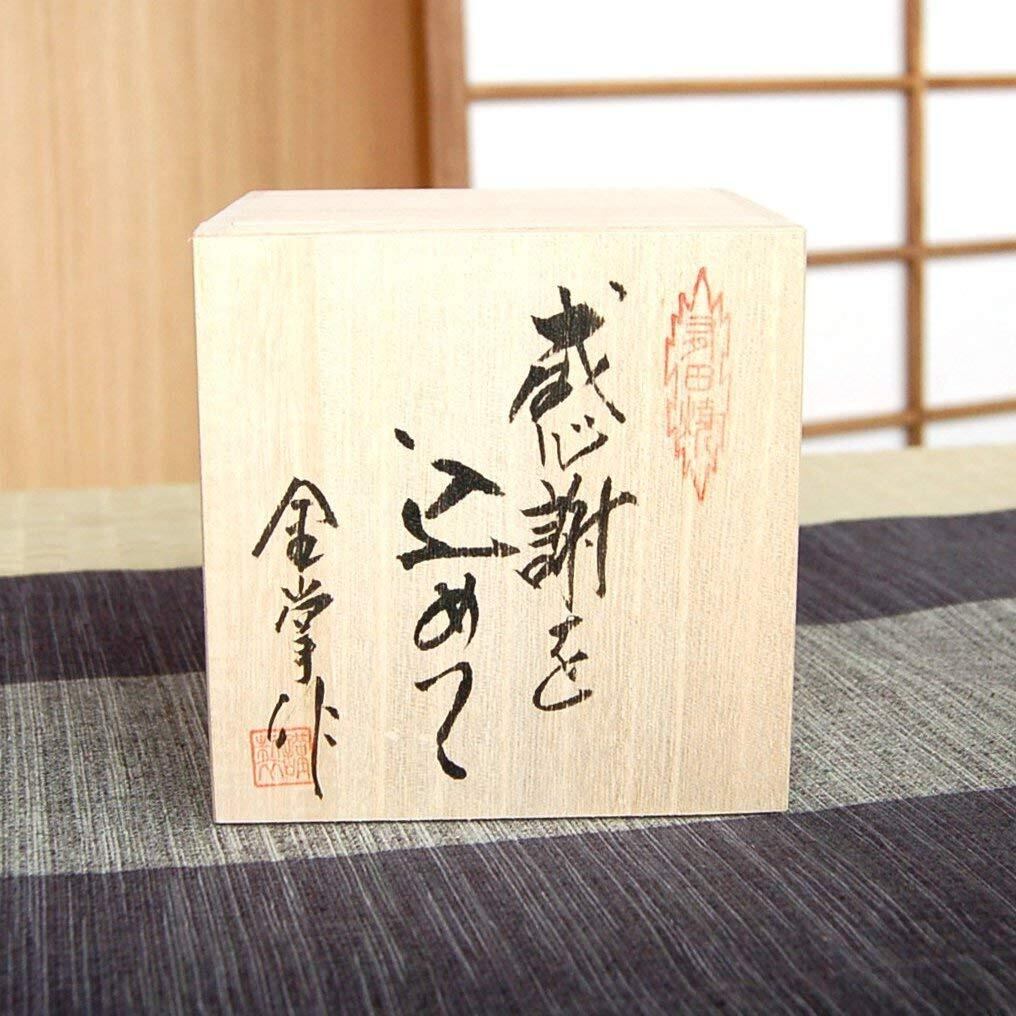 有田焼
感謝を
込めて
金掌作